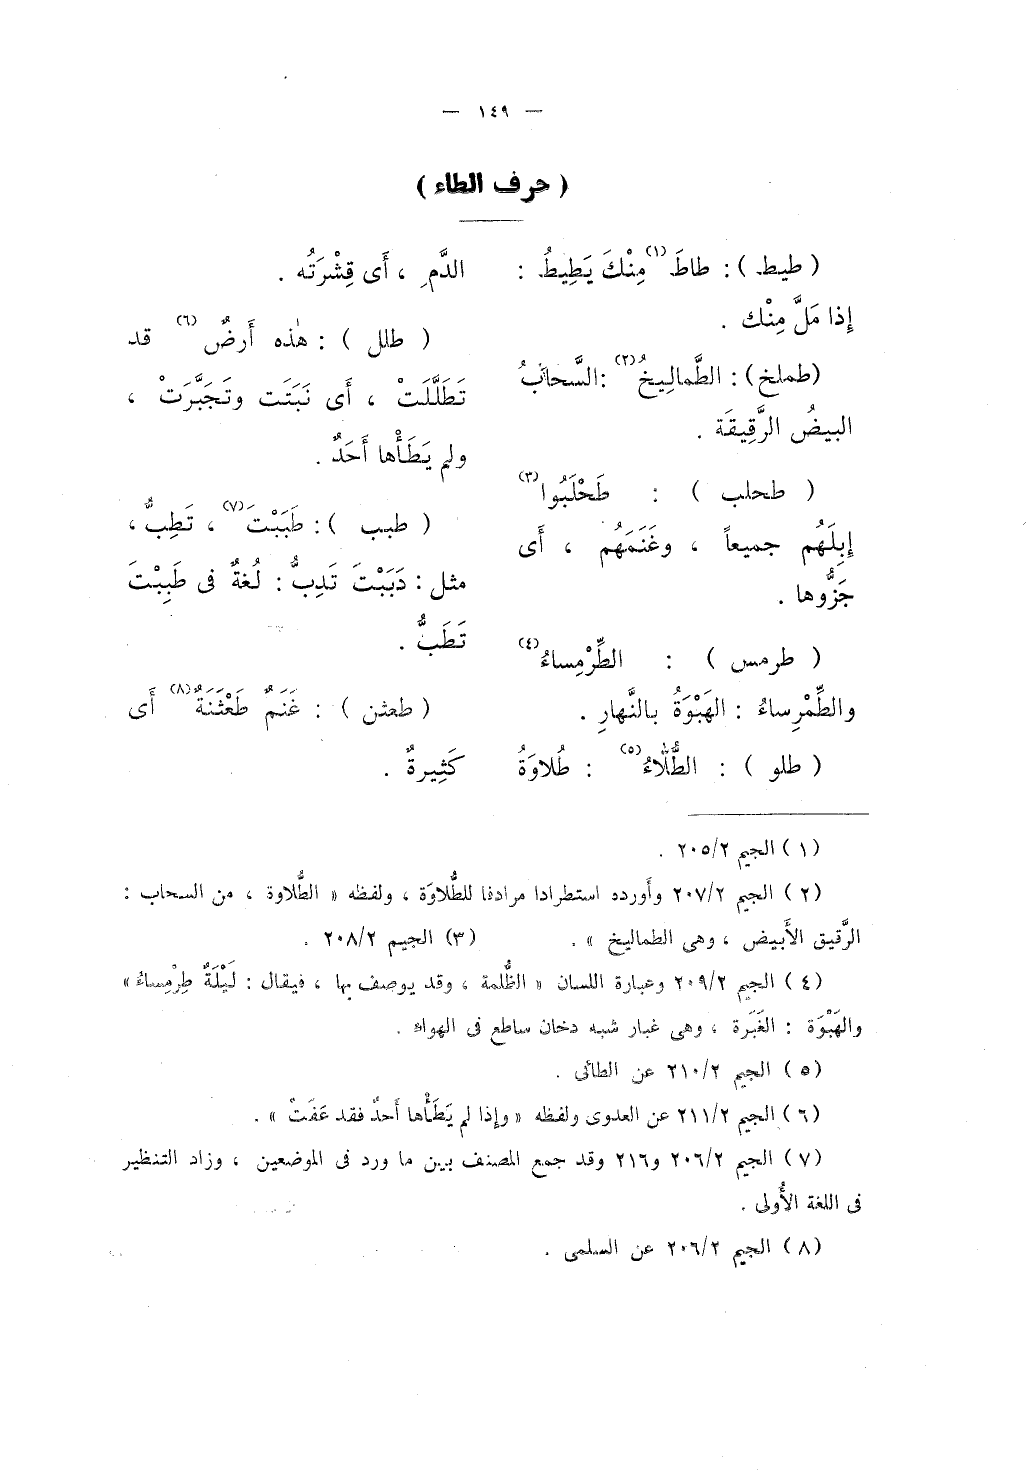 — ١٤٩ —
( حرف الطاء )
( طيط ) : طاطَ (١) مِنْكَ يَطِيطُ :
إذا مَلَّ مِنْك .
(طملخ) : الطَّمالِيخُ (٢) : السَّحابُ
البيضُ الرَّقِيقَة .
( طحلب ) : طَحْلَبُوا (٣)
إبِلَهُم جميعاً ، وغَنَمَهُم ، أَى
جَزُّوها .
( طرمس ) : الطِّرْمِساءُ (٤)
والطِّمْرِساءُ : الهَبْوَةُ بالنَّهارِ .
( طلو ) : الطُّلَّاءُ (٥) : طُلاوَةُ
الدَّمِ ، أَى قِشْرَتُه .
( طلل ) : هٰذه أَرضٌ (٦) قد
تَطَلَّلَتْ ، أَى نَبَتَت وتَجَبَّرَتْ ،
ولم يَطَأْها أَحَدٌ .
( طبب ) : طَبَبْتَ (٧) ، تَطِبُّ ،
مثل : دَبَبْتَ تَدِبُّ : لُغةٌ فى طَبِبْتَ
تَطَبُّ .
( طعثن ) : غَنَمٌ طَعْثَنَةٌ (٨) أَى
كَثِيرةٌ .
(١) الجيم ٢٠٥/٢ .
(٢) الجيم ٢٠٧/٢ وأَورده استطرادا مرادفا للطُّلاوَة ، ولفظه « الطُّلاوة ، من السحاب :
الرَّقيق الأَبيض ، وهى الطماليخ » . (٣) الجيم ٢٠٨/٢ .
(٤) الجيم ٢٠٩/٢ وعبارة اللسان « الظُّلمة ، وقد يوصف بها ، فيقال : لَيْلَةٌ طِرْمِساءُ »
والهَبْوَة : الغَبَرة ، وهى غبار شبه دخان ساطع فى الهواء .
(٥) الجيم ٢١٠/٢ عن الطائى .
(٦) الجيم ٢١١/٢ عن العدوى ولفظه « وإذا لم يَطَأْها أَحدٌ فقد عَفَتْ » .
(٧) الجيم ٢٠٦/٢ و٢١٦ وقد جمع المصنف بين ما ورد فى الموضعين ، وزاد التنظير
فى اللغة الأُولى .
(٨) الجيم ٢٠٦/٢ عن السلمى .